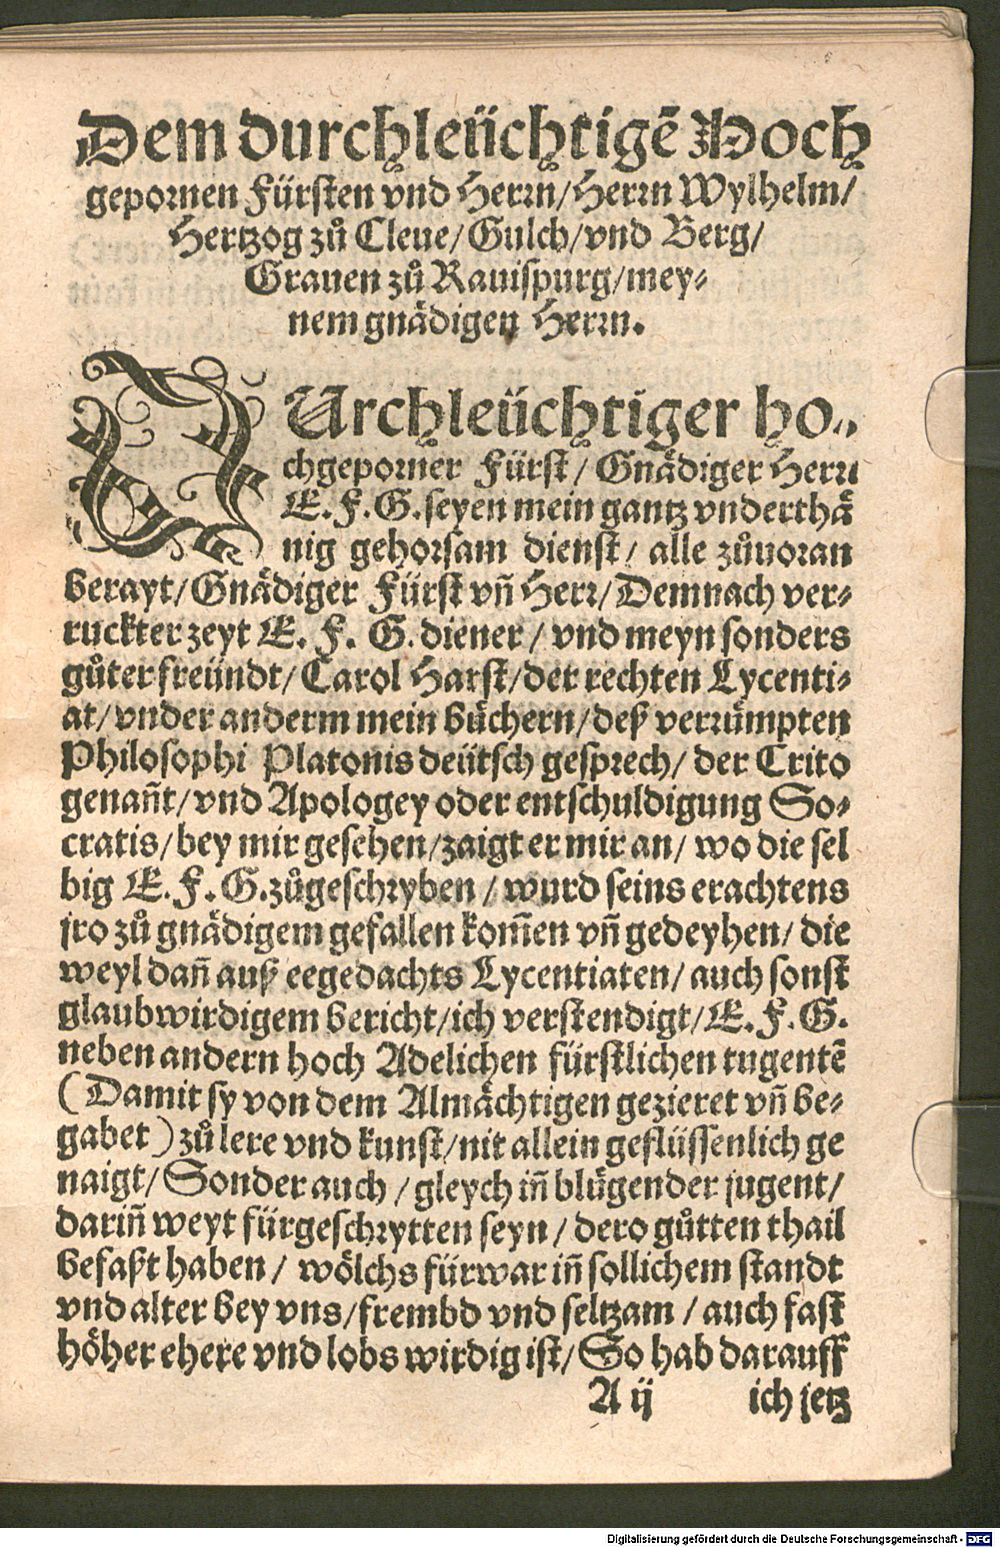 Dem durchleüchtigē Hoch
gepornen Fürsten vnd Herrn/Herrn Wylhelm/
Hertzog zů Cleue/Gulch/vnd Berg/
Grauen zů Rauispurg/mey-
nem gnädigen Herrn.
DUrchleüchtiger ho-
chgeporner Fürst/ Gnädiger Herr
E. F. G. seyen mein gantz vnderthä
nig gehorsam dienst/ alle zůuoran
berayt/Gnädiger Fürst vñ Herr/Demnach ver-
ruckter zeyt E. F. G. diener/ vnd meyn sonders
gůter freündt/Carol Harst/der rechten Lycenti-
at/vnder anderm mein büchern/deß verrümpten
Philosophi Platonis deütsch gesprech/ der Crito
genañt/vnd Apologey oder entschuldigung So-
cratis/bey mir gesehen/zaigt er mir an/ wo die sel
big E. F. G. zůgeschryben/ wurd seins erachtens
jro zů gnädigem gefallen kom̄en vñ gedeyhen/ die
weyl dañ auß eegedachts Lycentiaten/ auch sonst
glaubwirdigem bericht/ich verstendigt/E. F. G.
neben andern hoch Adelichen fürstlichen tugentē
(Damit sy von dem Almächtigen gezieret vñ be-
gabet) zů lere vnd kunst/nit allein geflüssenlich ge
naigt/Sonder auch/ gleych iñ blügender jugent/
dariñ weyt fürgeschrytten seyn/ dero gůtten thail
befaßt haben/ wölchs fürwar iñ sollichem standt
vnd alter bey vns/frembd vnd seltzam/ auch fast
höher ehere vnd lobs wirdig ist/ So hab darauff
A ij ich jetz
Digitalisierung gefördert durch die Deutsche Forschungsgemeinschaft - DFG